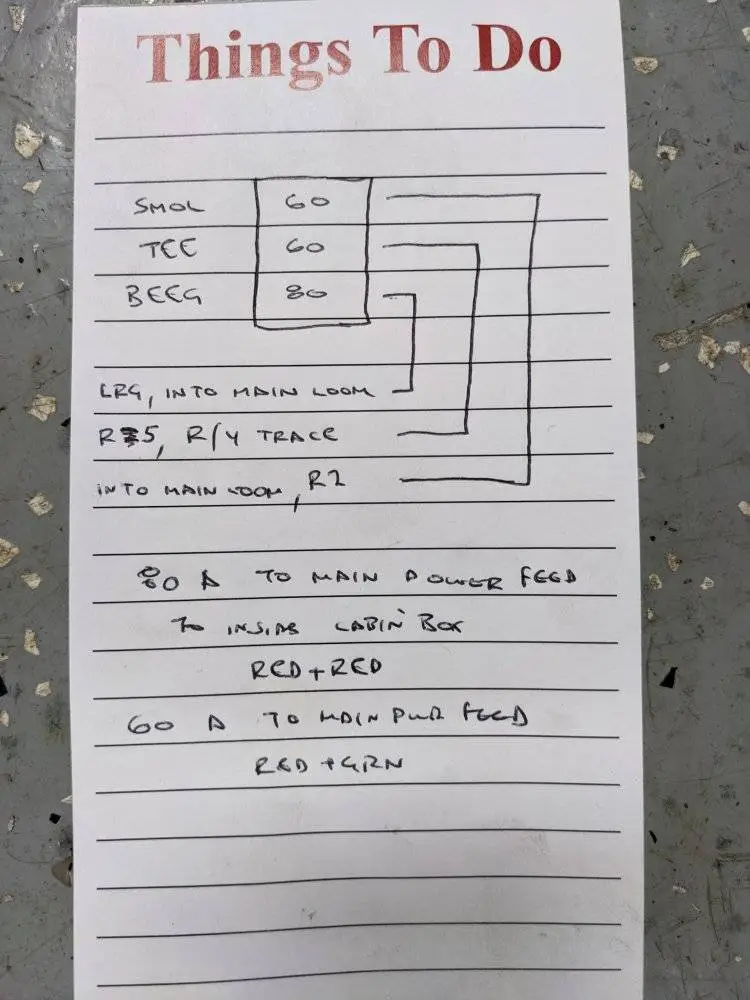 Things To Do
SMOL 60
TEE 60
BEEG 80
LRG, INTO MAIN LOOM
R5, R/Y TRACE
INTO MAIN LOOM, R2
80 A TO MAIN POWER FEED
TO INSIDE CABIN BOX
RED + RED
60 A TO MAIN PWR FEED
RED + GRN